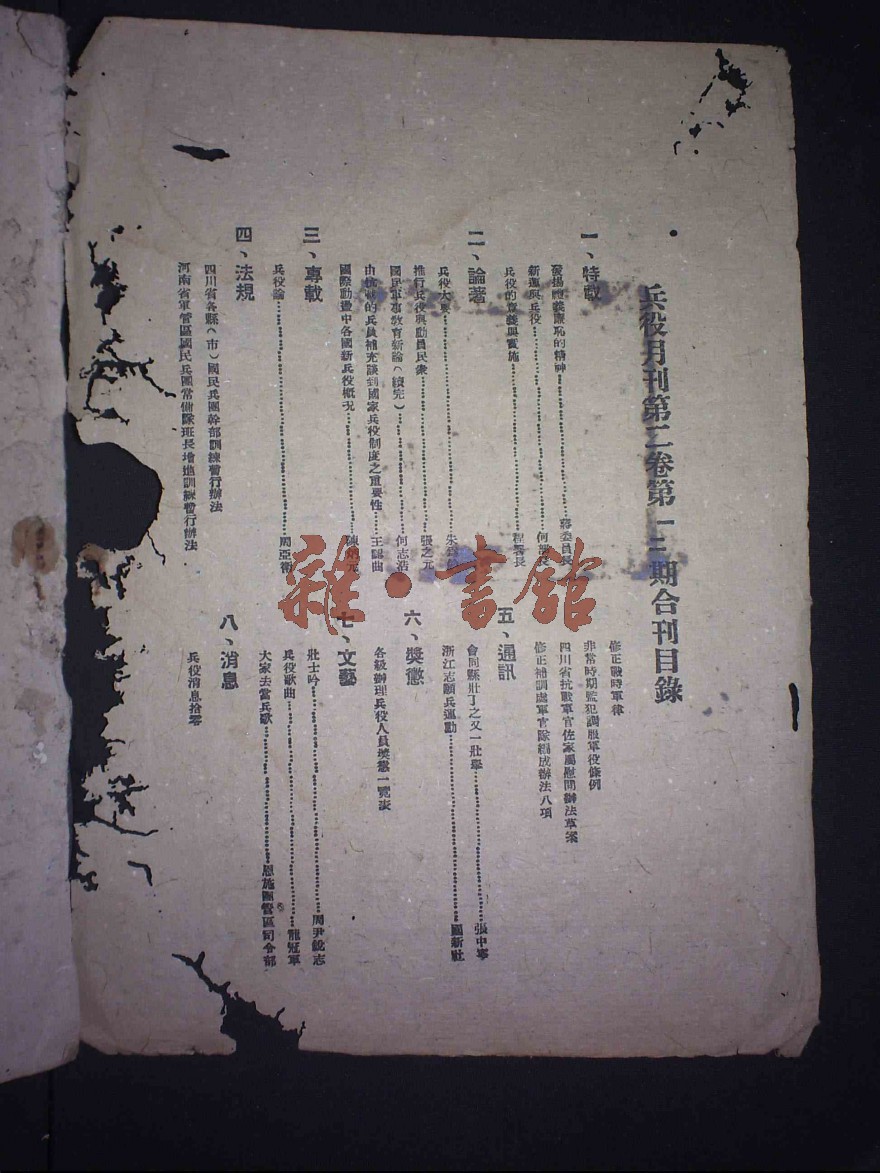 兵役月刊第二卷第一二期合刊目錄
一、特載
發揚禮義廉恥的精神………蔣委員長
新運與兵役………何部長
兵役的意義與實施………程署長
二、論著
兵役大要………朱
推行兵役與動員民衆………張之元
國民軍事教育新論(續完)………何志浩
由抗戰的兵員補充談到國家兵役制度之重要性………王 曲
國際動盪中各國新兵役概况………陳 元
三、專載
兵役論………周亞衛
四、法規
四川省各縣(市)國民兵團幹部訓練暫行辦法
河南省軍管區國民兵團常備隊班長增進訓練暫行辦法
修正戰時軍律
非常時期監犯調服軍役條例
四川省抗戰軍官佐家屬慰問辦法草案
修正補訓處軍官隊編成辦法八項
五、通訊
會同縣壯丁之又一壯舉………張中寧
浙江志願兵運動………國新社
六、獎懲
各級辦理兵役人員獎懲一覽表
七、文藝
壯士吟………周尹銳志
兵役歌曲………龍冠軍
大家去當兵歌………恩施團管區司令部
八、消息
兵役消息拾零
雜·書館